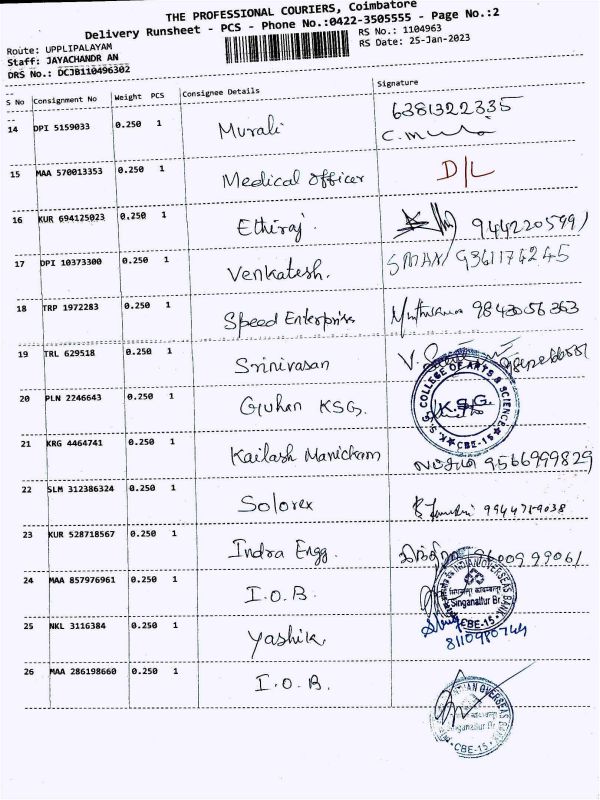 THE PROFESSIONAL COURIERS, Coimbatore
Delivery Runsheet - PCS - Phone No.:0422-3505555 - Page No.:2
Route: UPPLIPALAYAM
Staff: JAYACHANDR AN
DRS No.: DCJB110496302
RS No.: 1104963
RS Date: 25-Jan-2023
S No Consignment No Weight PCS Consignee Details Signature
14 DPI 5159033 0.250 1 Murali 6381322335
15 MAA 570013353 0.250 1 Medical officer D/L
16 KUR 694125023 0.250 1 Ethiraj. 9442205991
17 DPI 10373300 0.250 1 Venkatesh. SMAX/ 9361174245
18 TRP 1972283 0.250 1 Speed Enterprises 9843056363
19 TRL 629518 0.250 1 Srinivasan
20 PLN 2246643 0.250 1 Guhan KSG.
K.S.G. COLLEGE OF ARTS & SCIENCE
K.S.G.
CBE-15
21 KRG 4464741 0.250 1 Kailash Manickam 9566999829
22 SLM 312386324 0.250 1 Solorex 9944759038
23 KUR 528718567 0.250 1 Indra Engg. 9600999061
24 MAA 857976961 0.250 1 I.O.B.
INDIAN OVERSEAS BANK
Singanallur Br.
CBE-15
25 NKL 3116384 0.250 1 Yashik 8110980744
26 MAA 286198660 0.250 1 I.O.B.
INDIAN OVERSEAS BANK
Singanallur Br.
CBE-15